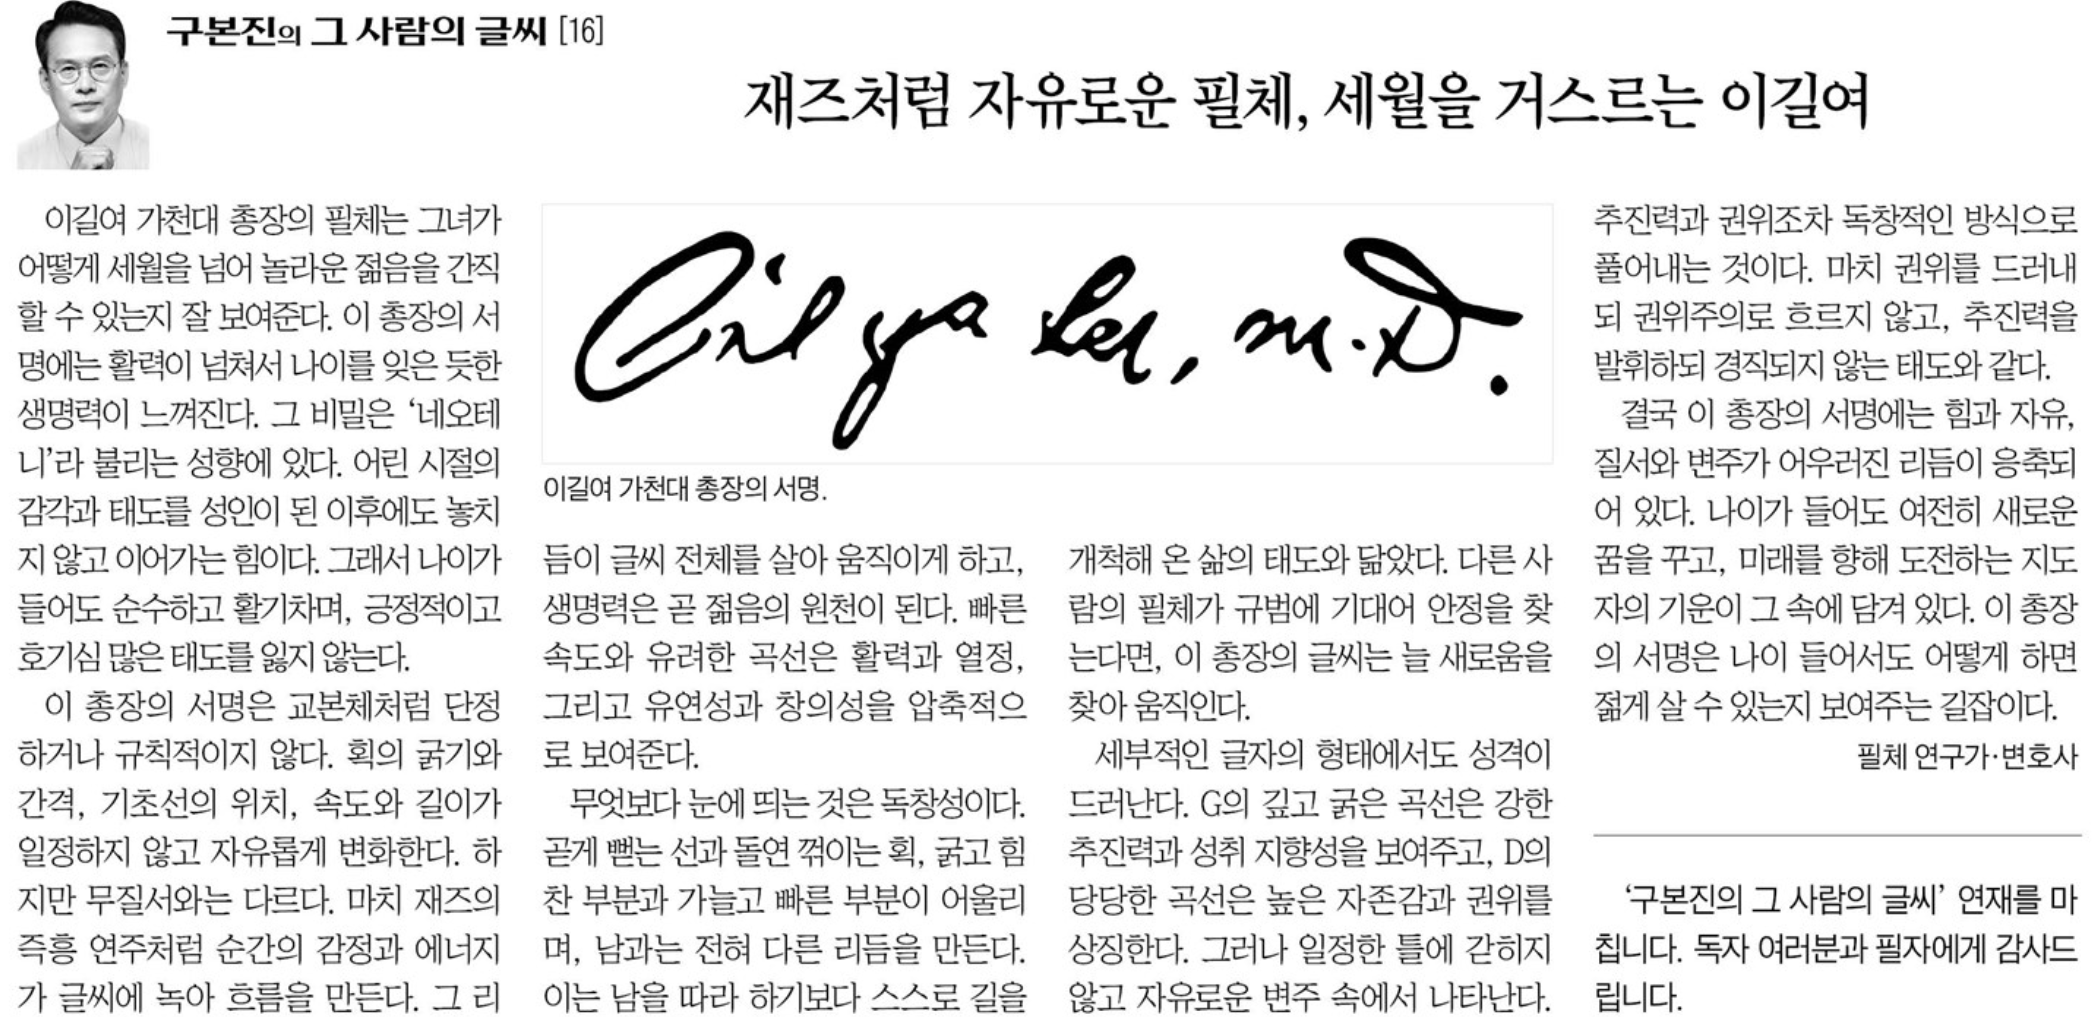 구본진의 그 사람의 글씨 [16]
재즈처럼 자유로운 필체, 세월을 거스르는 이길여
이길여 가천대 총장의 필체는 그녀가
어떻게 세월을 넘어 놀라운 젊음을 간직
할 수 있는지 잘 보여준다. 이 총장의 서
명에는 활력이 넘쳐서 나이를 잊은 듯한
생명력이 느껴진다. 그 비밀은 ‘네오테
니’라 불리는 성향에 있다. 어린 시절의
감각과 태도를 성인이 된 이후에도 놓치
지 않고 이어가는 힘이다. 그래서 나이가
들어도 순수하고 활기차며, 긍정적이고
호기심 많은 태도를 잃지 않는다.
이 총장의 서명은 교본체처럼 단정
하거나 규칙적이지 않다. 획의 굵기와
간격, 기초선의 위치, 속도와 길이가
일정하지 않고 자유롭게 변화한다. 하
지만 무질서와는 다르다. 마치 재즈의
즉흥 연주처럼 순간의 감정과 에너지
가 글씨에 녹아 흐름을 만든다. 그 리
Gil ya Lee, M.D.
이길여 가천대 총장의 서명.
듬이 글씨 전체를 살아 움직이게 하고,
생명력은 곧 젊음의 원천이 된다. 빠른
속도와 유려한 곡선은 활력과 열정,
그리고 유연성과 창의성을 압축적으
로 보여준다.
무엇보다 눈에 띄는 것은 독창성이다.
곧게 뻗는 선과 돌연 꺾이는 획, 굵고 힘
찬 부분과 가늘고 빠른 부분이 어울리
며, 남과는 전혀 다른 리듬을 만든다.
이는 남을 따라 하기보다 스스로 길을
개척해 온 삶의 태도와 닮았다. 다른 사
람의 필체가 규범에 기대어 안정을 찾
는다면, 이 총장의 글씨는 늘 새로움을
찾아 움직인다.
세부적인 글자의 형태에서도 성격이
드러난다. G의 깊고 굵은 곡선은 강한
추진력과 성취 지향성을 보여주고, D의
당당한 곡선은 높은 자존감과 권위를
상징한다. 그러나 일정한 틀에 갇히지
않고 자유로운 변주 속에서 나타난다.
추진력과 권위조차 독창적인 방식으로
풀어내는 것이다. 마치 권위를 드러내
되 권위주의로 흐르지 않고, 추진력을
발휘하되 경직되지 않는 태도와 같다.
결국 이 총장의 서명에는 힘과 자유,
질서와 변주가 어우러진 리듬이 응축되
어 있다. 나이가 들어도 여전히 새로운
꿈을 꾸고, 미래를 향해 도전하는 지도
자의 기운이 그 속에 담겨 있다. 이 총장
의 서명은 나이 들어서도 어떻게 하면
젊게 살 수 있는지 보여주는 길잡이다.
필체 연구가·변호사
‘구본진의 그 사람의 글씨’ 연재를 마
칩니다. 독자 여러분과 필자에게 감사드
립니다.